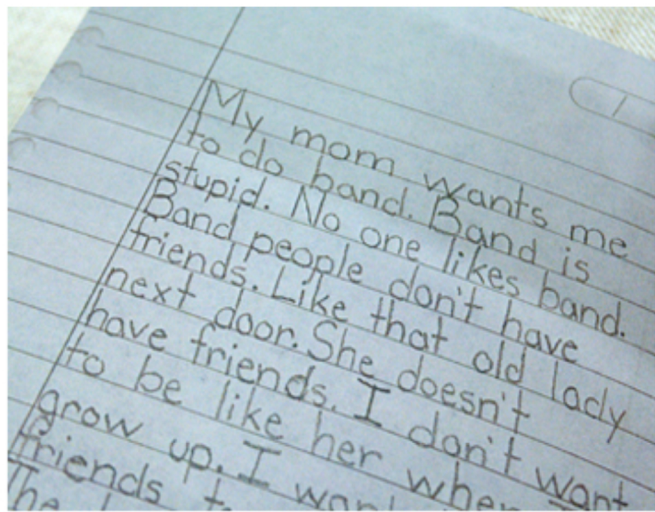 1
My mom wants me
to do band. Band is
stupid. No one likes band.
Band people don't have
friends. Like that old lady
next door. She doesn't
have friends. I don't want
to be like her when I
grow up. I want
friends t
The